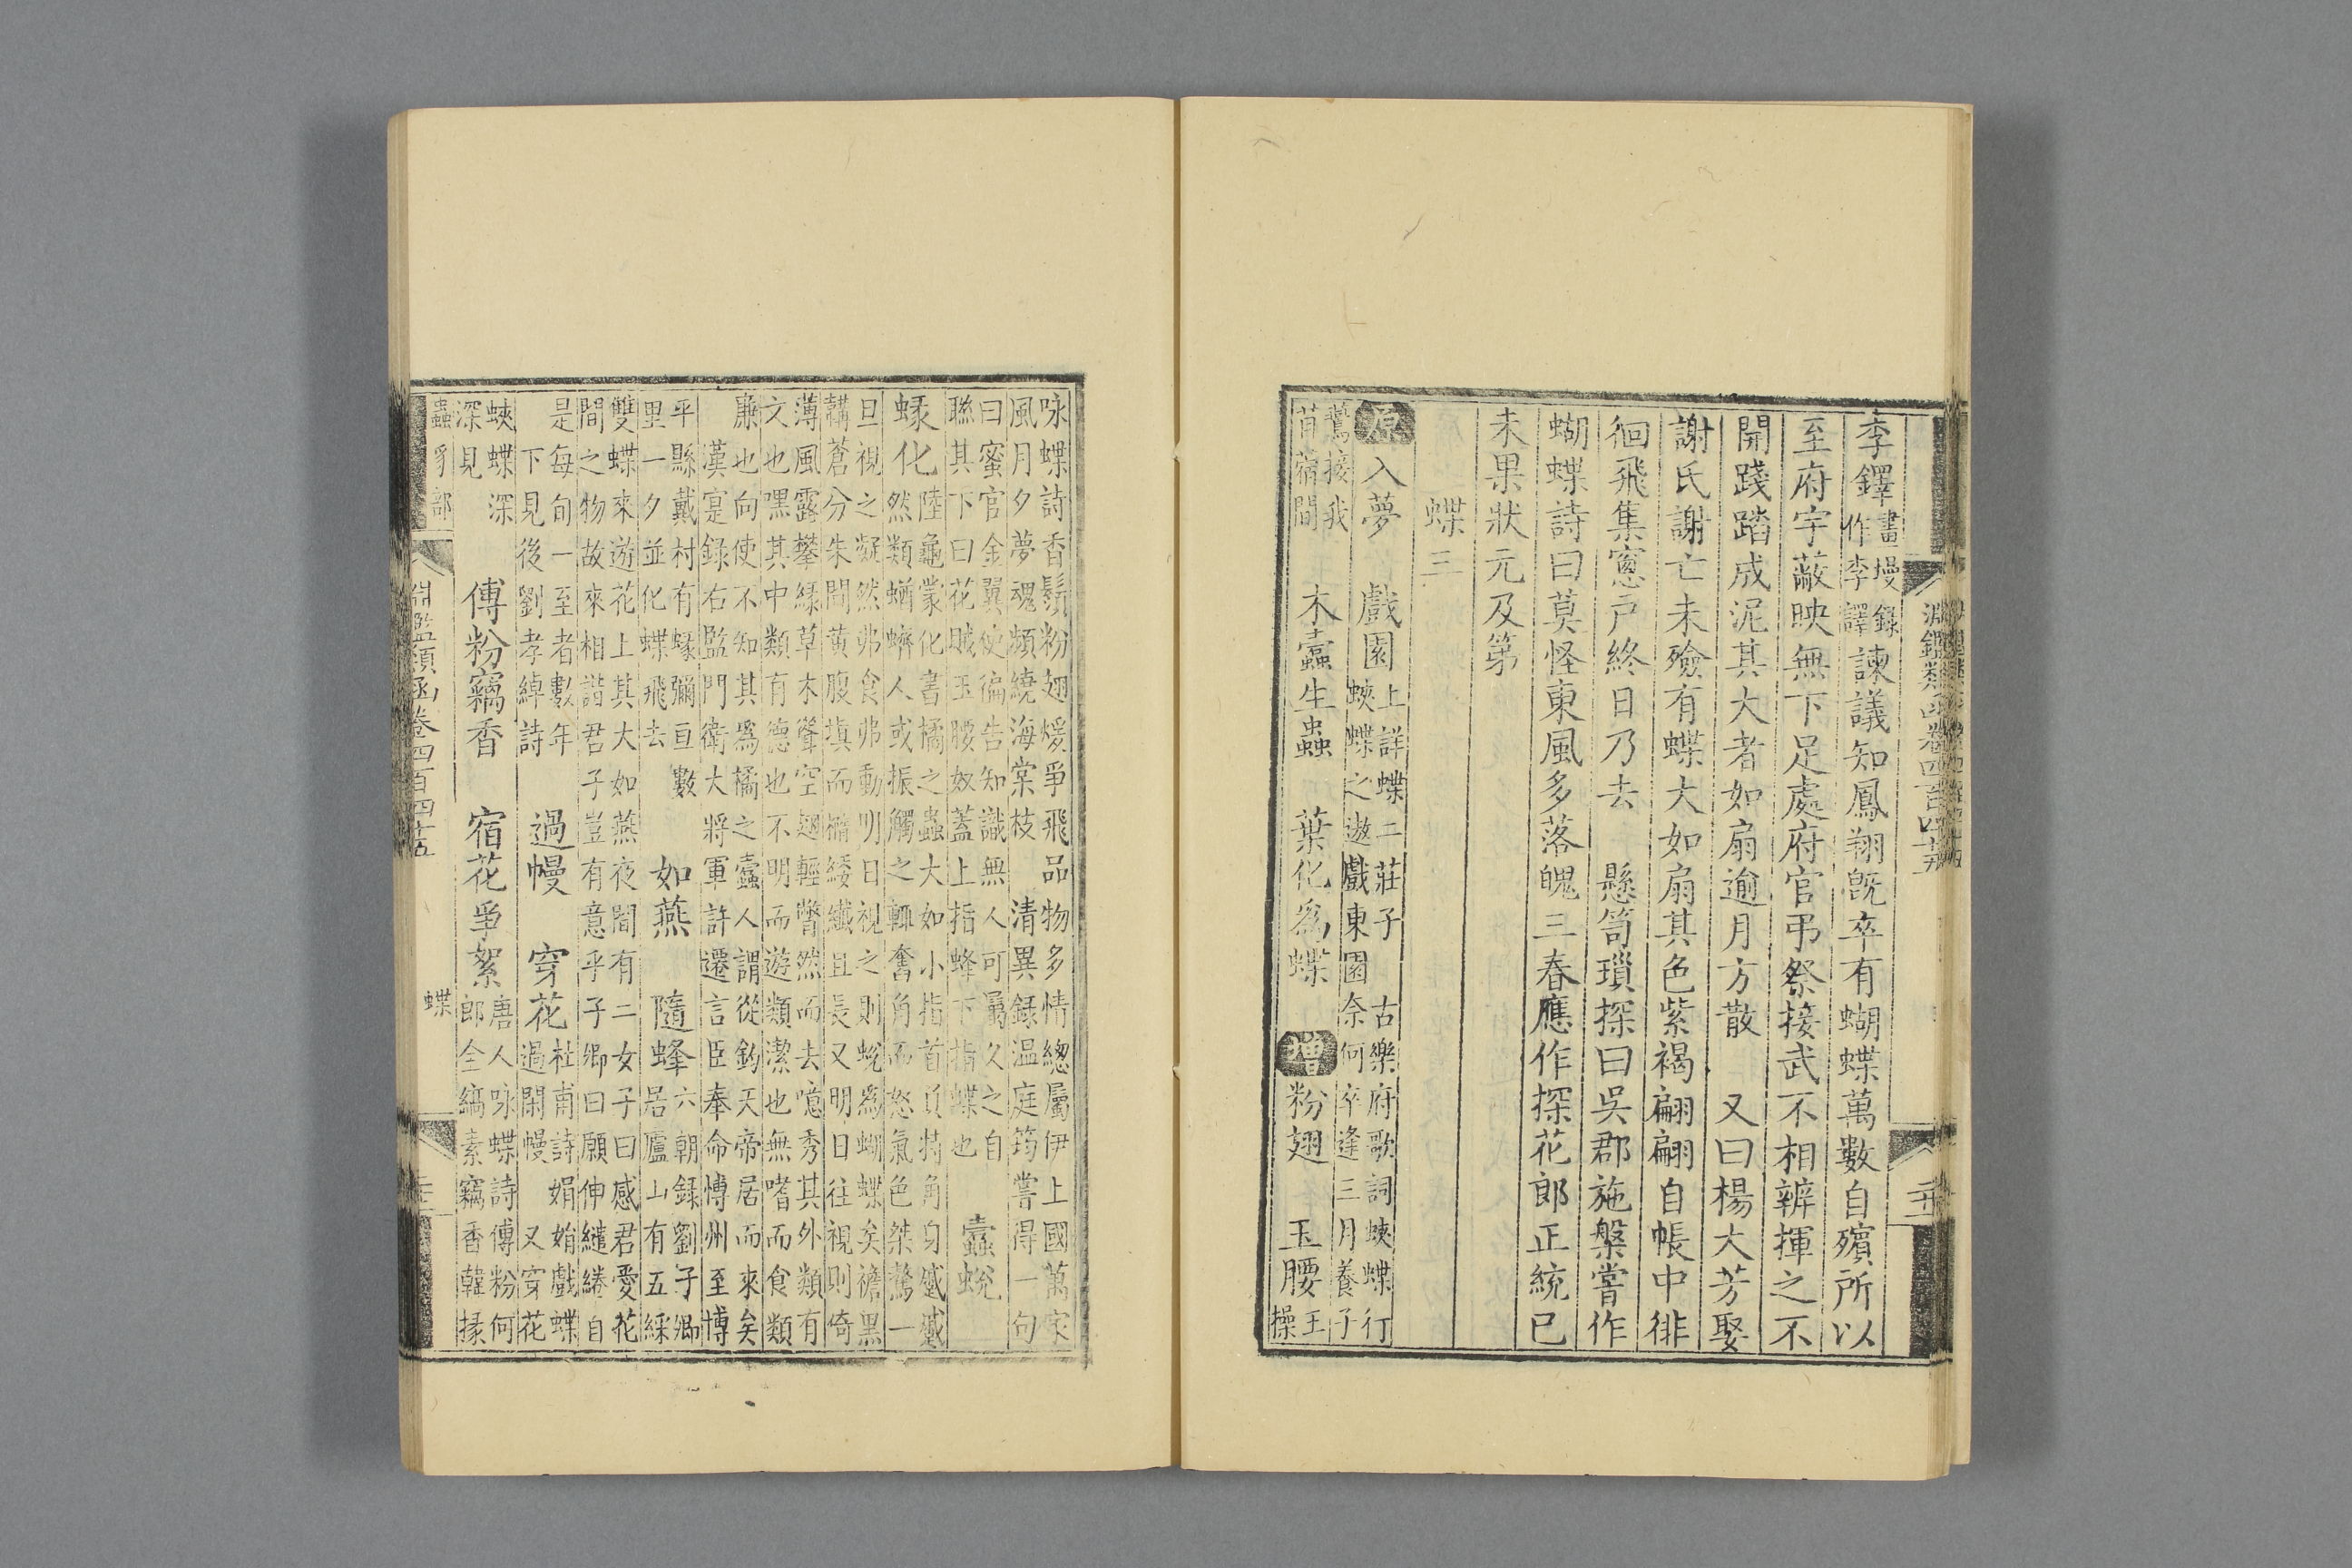 淵鑑類函卷四百四十五
李鐸畫墁錄作李譯諫議知鳳翔旣卒有蝴蝶萬數自殯所以
至府宇蔽映無下足處府官弔祭接武不相辨揮之不
開踐踏成泥其大者如扇逾月方散 又曰楊大芳娶
謝氏謝亡未殮有蝶大如扇其色紫褐翩翩自帳中徘
徊飛集窻戸終日乃去 懸笥瑣探曰吳郡施槃嘗作
蝴蝶詩曰莫怪東風多落魄三春應作探花郎正統已
未果狀元及第
蝶三
原入夢 戲園上詳蝶二莊子 古樂府歌詞蛺蝶行蛺蝶之遨戲東園奈何卒逢三月養子
鷰接我苜蓿間 木蠧生蟲 葉化爲蝶 增粉翅 玉腰王操
咏蝶詩香鬚粉翅煖爭飛品物多情總屬伊上國萬家
風月夕夢魂頻繞海棠枝 清異錄温庭筠嘗得一句
曰蜜官金翼使徧告知識無人可屬久之自
聯其下曰花賊玉腰奴蓋上指蜂下指蝶也 蠧蛻
蝝化陸龜蒙化書橘之蟲大如小指首負特角身蹙蹙
然類蝤蠐人或振觸之輒奮角而怒氣色桀驁一
旦視之凝然弗食弗動明日視之則蛻爲蝴蝶矣襜黑
韝蒼分朱間黄腹塡而橢緌纖且長又明日往視則倚
薄風露攀緣草木聳空翅輕瞥然而去噫秀其外類有
文也嘿其中類有德也不明而遊類潔也無嗜而食類
廉也向使不知其爲橘之蠧人謂從鈞天帝居而來矣
漢寔錄右監門衛大將軍許遷言臣奉命博州至博
平縣戴村有蝝彌亘數 如燕 隨蜂六朝錄劉子卿
里一夕並化蝶飛去 居廬山有五綵
雙蝶來遊花上其大如燕夜間有二女子曰感君愛花
間之物故來相諧君子豈有意乎子卿曰願伸繾綣自
是每旬一至者數年 過幔 穿花杜甫詩娟娟戲蝶
下見後劉孝綽詩 過閑幔 又穿花
蛺蝶深深見 傅粉竊香 宿花爭絮唐人咏蝶詩傅粉何
郎全縞素竊香韓掾
蟲豸部 淵鑑類函卷四百四十五 蝶